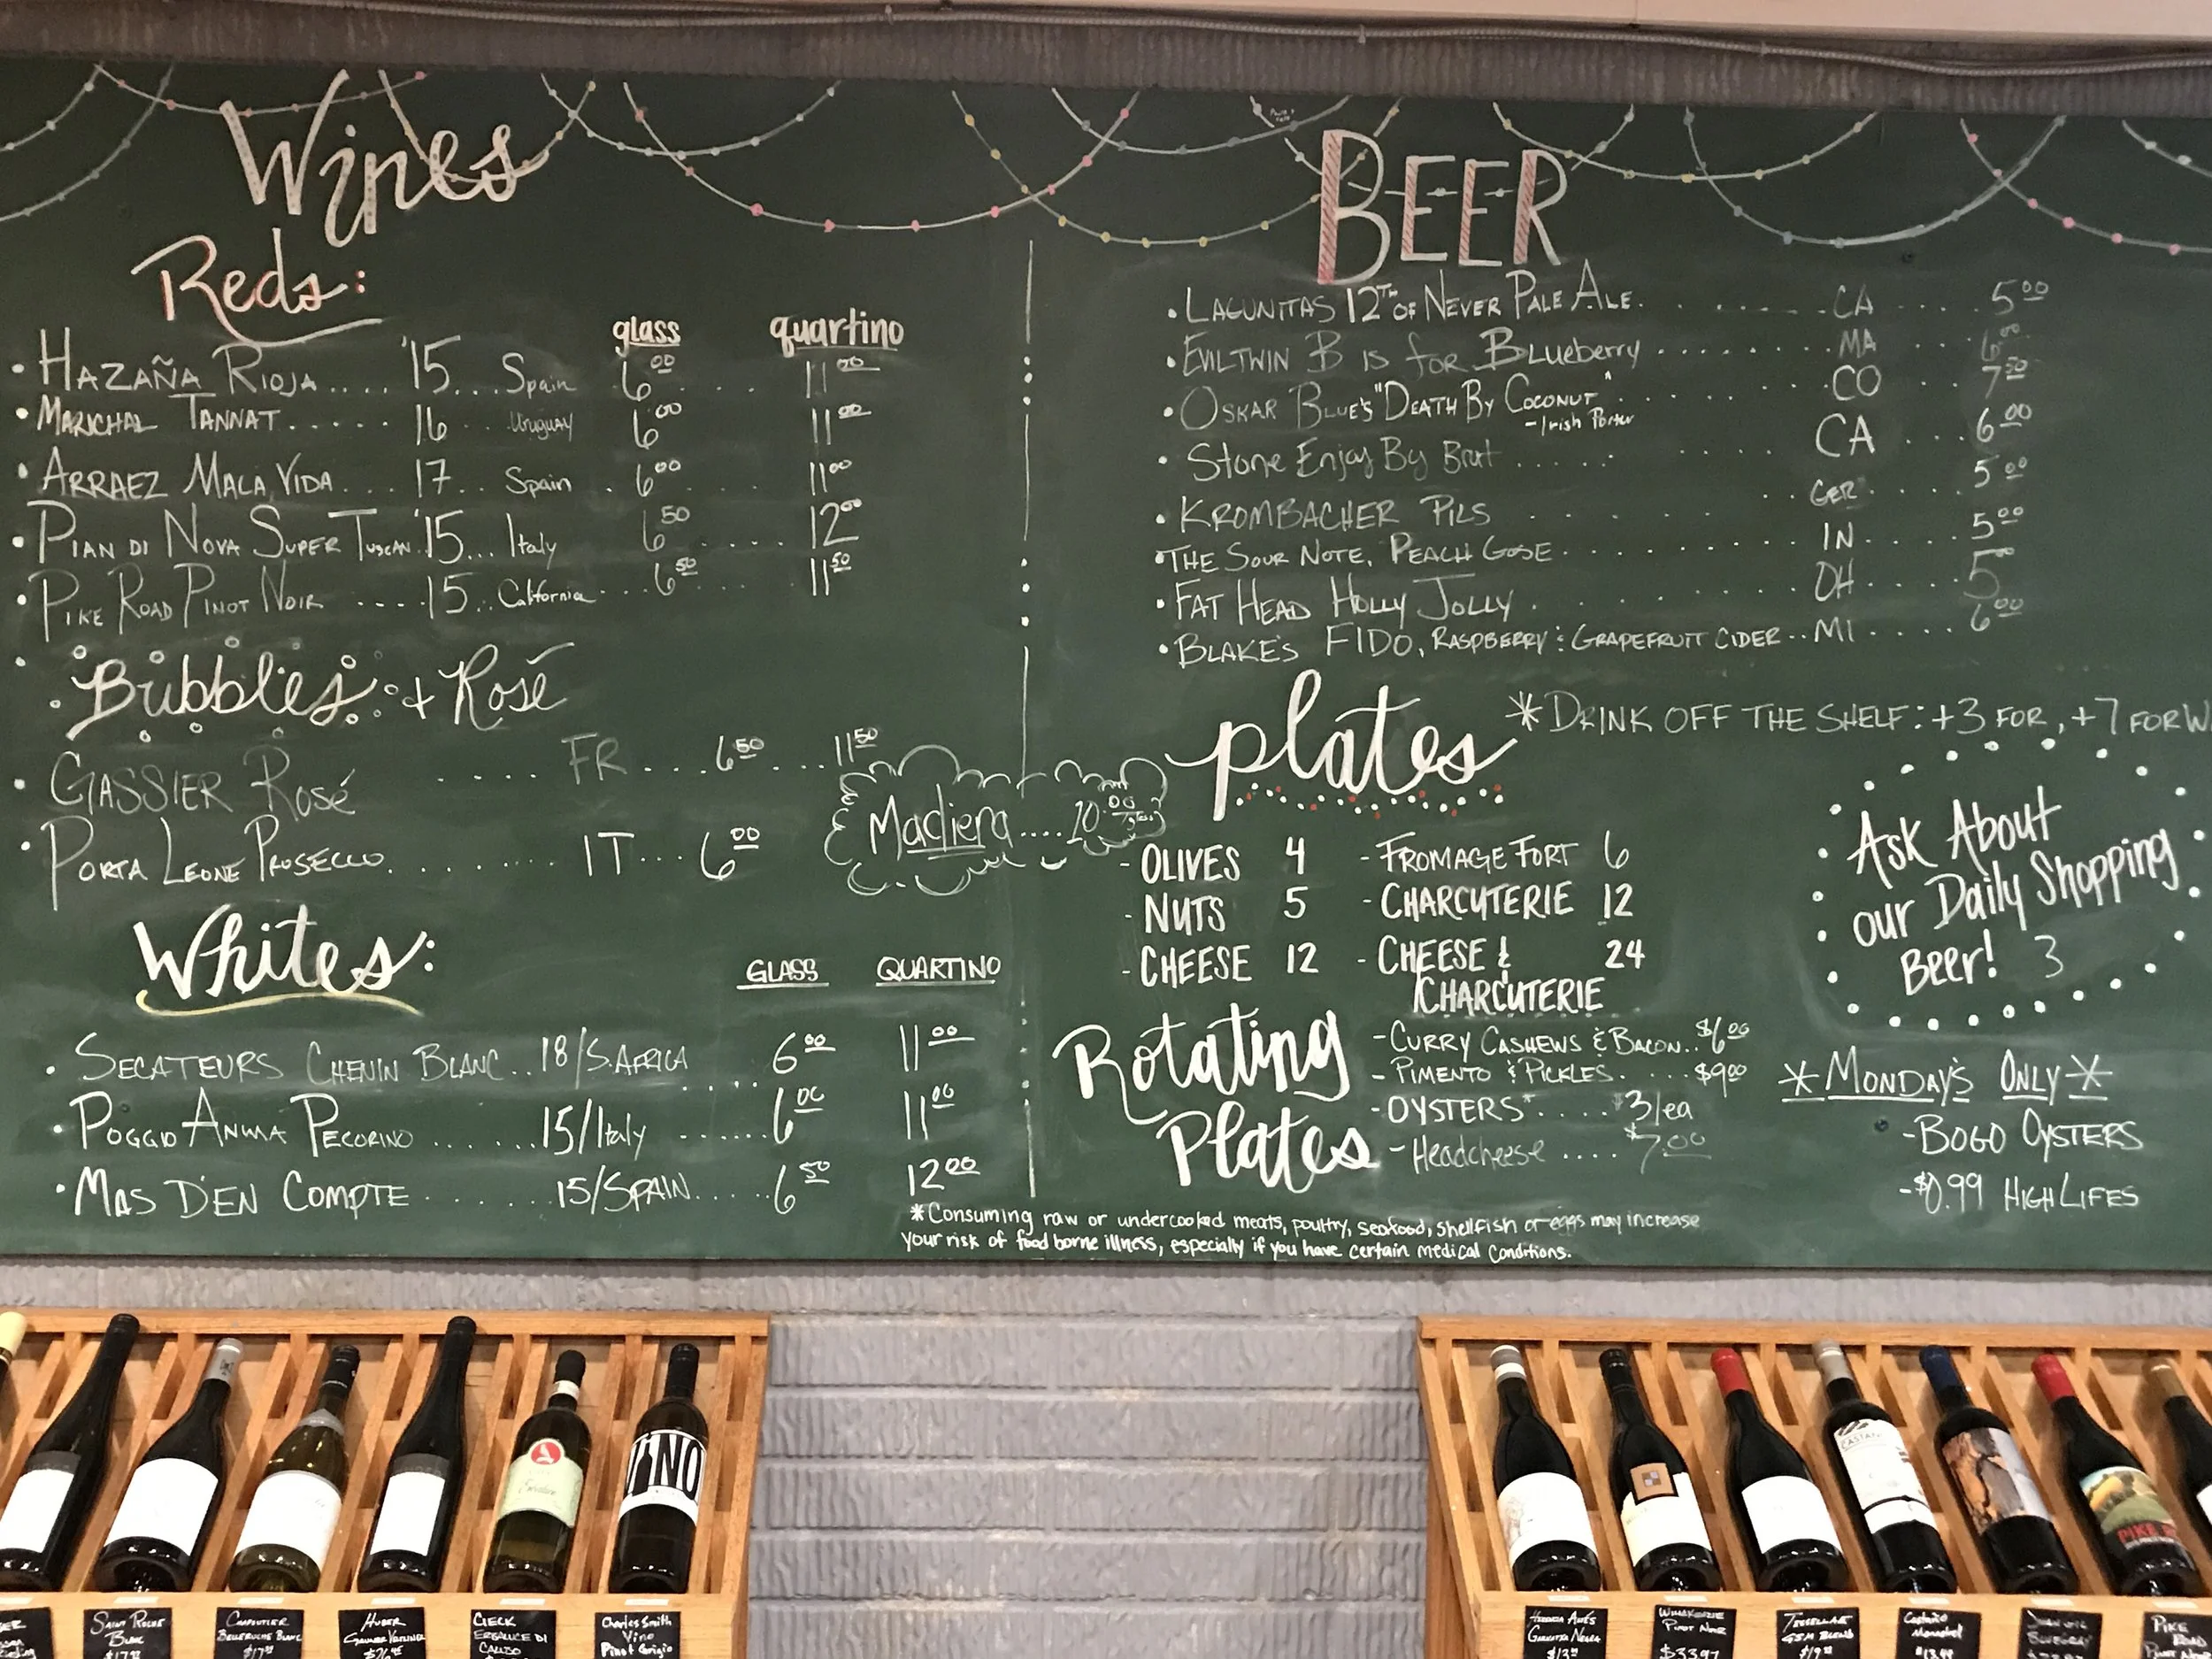 Wines
Reds:
glass quartino
• HAZAÑA RIOJA.... '15... Spain 6.00 ... 11.00
• MARICHAL TANNAT...... 16 .. Uruguay 6.00 11.00
• ARRAEZ MALA VIDA.... 17... Spain . 6.00 ... 11.00
• PIAN DI NOVA SUPER TUSCAN '15... Italy 6.50 .... 12.00
• PIKE ROAD PINOT NOIR ....15... California... 6.50 ... 11.50
Bubbles + Rosé
• GASSIER ROSÉ .... FR... 6.50 ... 11.50
• PORTA LEONE PROSECCO......... IT... 6.00
Madiera.... 10.00 /glass
Whites:
GLASS QUARTINO
• SECATEURS CHENIN BLANC.. 18/S.AFRICA .... 6.00 11.00
• POGGIO ANIMA PECORINO ....... 15/Italy ....... 6.00 11.00
• MAS D'EN COMPTE ........ 15/SPAIN...... 6.50 12.00
BEER
• LAGUNITAS 12TH OF NEVER PALE ALE. ....... CA .... 5.00
• EVIL TWIN B IS for BLueberry ........ MA 6.00
• OSKAR BLUE'S "DEATH BY COCONUT" ...... CO ... 7.50
-Irish Porter
• Stone Enjoy By Brut ........... CA .... 6.00
• KROMBACHER PILS ....... GER ..... 5.00
• THE SOUR NOTE, PEACH GOSE .......... IN ..... 5.00
• FAT HEAD HOLLY JOLLY .......... OH ..... 5.00
• BLAKE'S FIDO, RASPBERRY & GRAPEFRUIT CIDER .. MI ..... 6.00
*DRINK OFF THE SHELF: +3 FOR , +7 FOR W
plates
- OLIVES 4
- NUTS 5
- CHEESE 12
- FROMAGE FORT 6
- CHARCUTERIE 12
- CHEESE & 24
CHARCUTERIE
Ask About
our Daily Shopping
Beer! 3
Rotating
Plates
- CURRY CASHEWS & BACON.. $6.00
- PIMENTO & PICKLES. .... $9.00
- OYSTERS* .... $3/ea
- Headcheese .... $7.00
*MONDAY'S ONLY*
- BOGO OYSTERS
- $0.99 HIGH LIFES
*Consuming raw or undercooked meats, poultry, seafood, shellfish or eggs may increase
your risk of food borne illness, especially if you have certain medical conditions.
VINO
CASTAÑO
PIKE
SAINT ROCHE
BLANC
$17.99
CHAPOUTIER
BELLERUCHE BLANC
HUBER
GRUNER VELTLINER
CIECK
ERBALUCE DI
CALUSO
Charles Smith
Vino
Pinot Grigio
GARNATXA NEGRA
PINOT NOIR
$33.97
GSM BLEND
Castaño
Monastrell
PIKE
ROAD